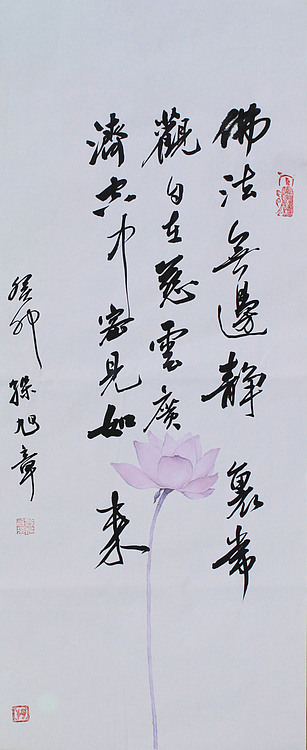 佛法無邊靜裏常
觀自在慈雲廣
濟空中密見如來
癸卯 孫旭章